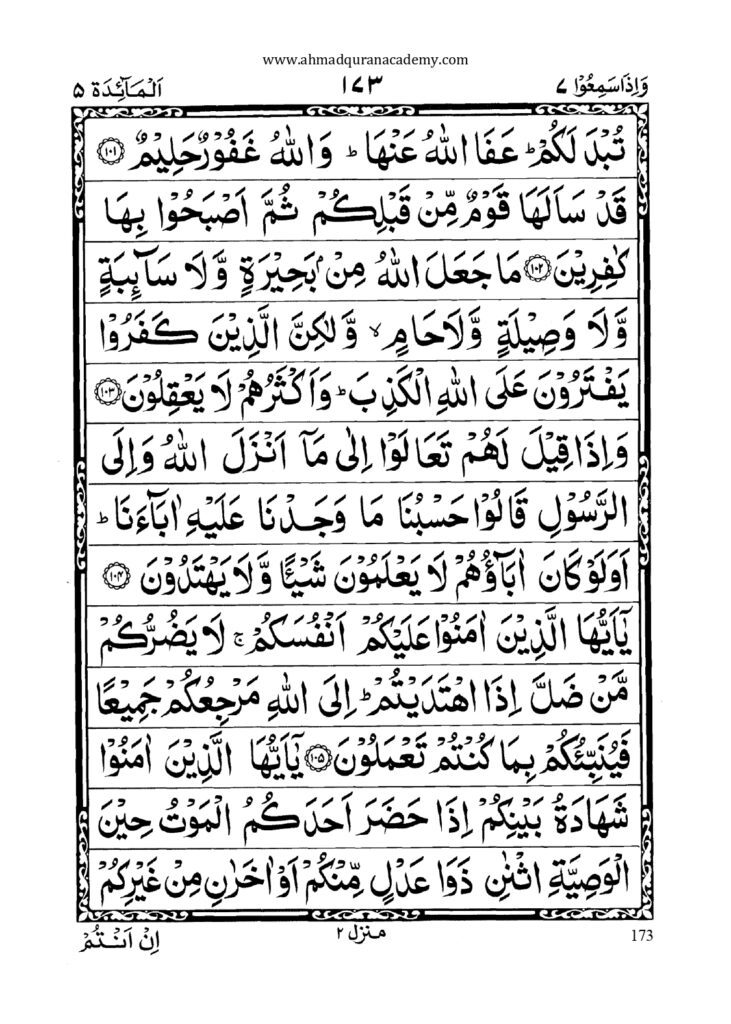 www.ahmadquranacademy.com
وَاِذَاسَمِعُوْا ٧ ١٧٣ اَلْمَآئِدَة ٥
تُبْدَ لَكُمْ ؕ عَفَا اللّٰهُ عَنْهَا ؕ وَاللّٰهُ غَفُوْرٌ حَلِيْمٌ ۝١٠١
قَدْ سَاَلَهَا قَوْمٌ مِّنْ قَبْلِكُمْ ثُمَّ اَصْبَحُوْا بِهَا
كٰفِرِيْنَ ۝١٠٢ مَا جَعَلَ اللّٰهُ مِنْۢ بَحِيْرَةٍ وَّلَا سَآئِبَةٍ
وَّلَا وَصِيْلَةٍ وَّلَا حَامٍ ۙ وَّلٰكِنَّ الَّذِيْنَ كَفَرُوْا
يَفْتَرُوْنَ عَلَى اللّٰهِ الْكَذِبَ ؕ وَاَكْثَرُهُمْ لَا يَعْقِلُوْنَ ۝١٠٣
وَاِذَا قِيْلَ لَهُمْ تَعَالَوْا اِلٰى مَآ اَنْزَلَ اللّٰهُ وَاِلَى
الرَّسُوْلِ قَالُوْا حَسْبُنَا مَا وَجَدْنَا عَلَيْهِ اٰبَآءَنَا ؕ
اَوَلَوْ كَانَ اٰبَآؤُهُمْ لَا يَعْلَمُوْنَ شَيْـًٔا وَّلَا يَهْتَدُوْنَ ۝١٠٤
يٰۤاَيُّهَا الَّذِيْنَ اٰمَنُوْا عَلَيْكُمْ اَنْفُسَكُمْ ۚ لَا يَضُرُّكُمْ
مَّنْ ضَلَّ اِذَا اهْتَدَيْتُمْ ؕ اِلَى اللّٰهِ مَرْجِعُكُمْ جَمِيْعًا
فَيُنَبِّئُكُمْ بِمَا كُنْتُمْ تَعْمَلُوْنَ ۝١٠٥ يٰۤاَيُّهَا الَّذِيْنَ اٰمَنُوْا
شَهَادَةُ بَيْنِكُمْ اِذَا حَضَرَ اَحَدَكُمُ الْمَوْتُ حِيْنَ
الْوَصِيَّةِ اثْنٰنِ ذَوَا عَدْلٍ مِّنْكُمْ اَوْ اٰخَرٰنِ مِنْ غَيْرِكُمْ
173 منزل ٢ اِنْ اَنْتُمْ